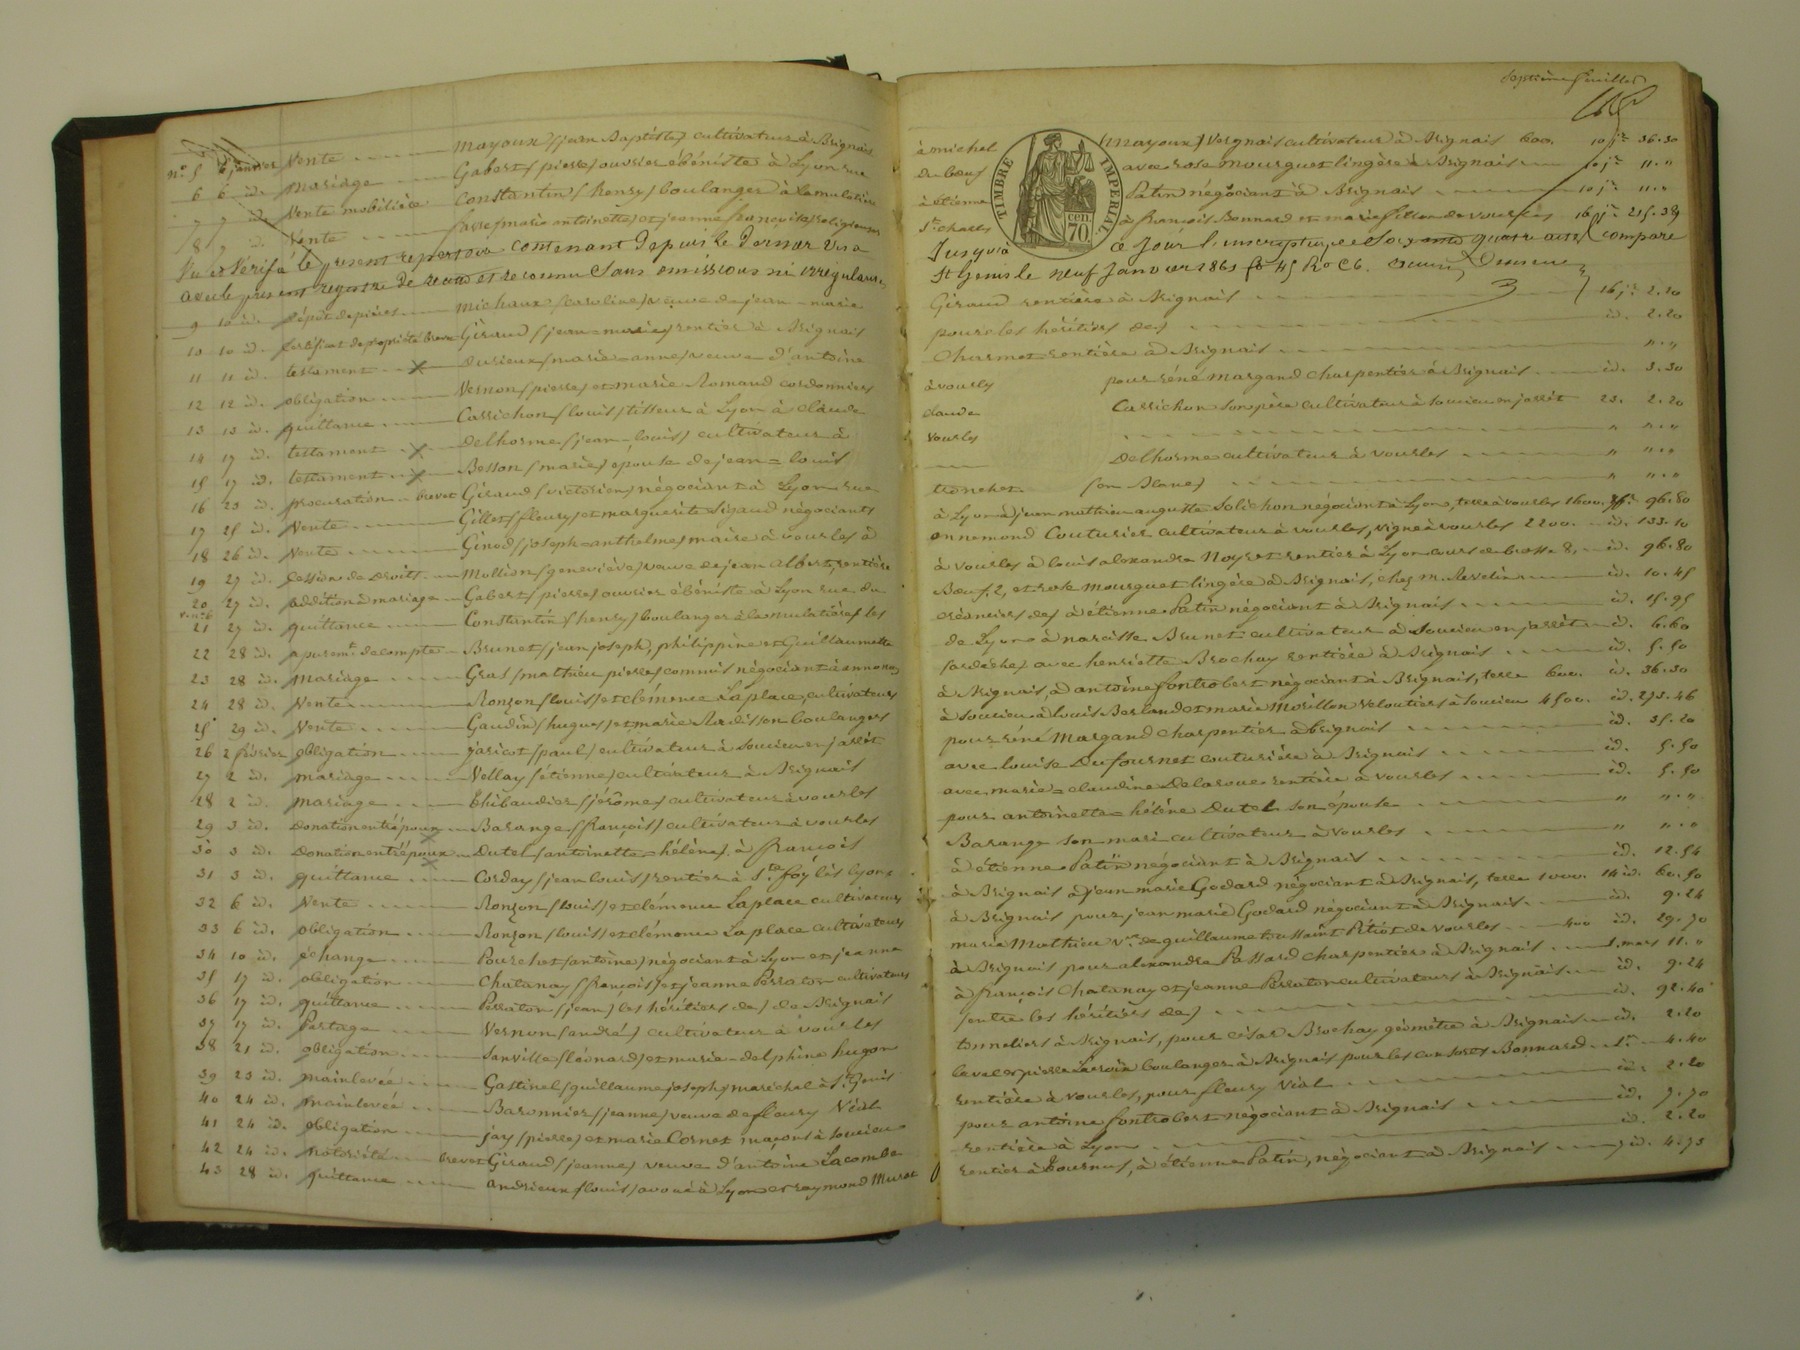 Septième feuillet
nº 5 6 janvier Vente Mayoux (jean Baptiste) cultivateur à Brignais
6 6 id. Mariage Gabert (pierre) ouvrier ébéniste à Lyon rue
7 7 id. Vente mobilière Constantin (henry) boulanger à la mulatière
8 9 id. Vente (marie antoinette) et jeanne françoise religieuses
Vu et Vérifié le présent répertoire contenant depuis le dernier Visa
avec le présent registre de et reconnu Sans omissions ni irrégularités
9 10 id. dépôt de pièces Michaux (caroline) veuve de jean-marie
10 10 id. Certificat de propriété brevet Giraud (jean-marie) rentier à Brignais
11 11 id. testament durieux (marie-anne) veuve d'antoine
12 12 id. obligation Vernon (pierre) et marie Romand cordonniers
13 13 id. quittance Carrichon (louis) tisseur à Lyon à claude
14 17 id. testament delhorme (jean-louis) cultivateur à
15 17 id. testament Besson (marie) épouse de jean-louis
16 23 id. procuration brevet Giraud (victorien) négociant à Lyon rue
17 25 id. Vente Gillet (fleury) et marguerite Sigaud négociants
18 26 id. Vente Ginod (joseph-anthelme) maire à vourles à
19 27 id. Cession de droits Mollion (geneviève) veuve de jean Albert, rentière
20 27 id. addition à mariage Gabert (pierre) ouvrier ébéniste à Lyon rue du
21 27 id. quittance Constantin (henry) boulanger à la mulatière les
22 28 id. apuremt. de compte Brunet (jean joseph, philippine et Guillaumette
23 28 id. Mariage Gras (mathieu pierre) commis négociant à annonay
24 28 id. Vente Ronzon (louis) et clémence Laplace, cultivateurs
25 29 id. Vente Gaudin (hugues) et marie Ardisson boulangers
26 2 février obligation jaricot (paul) cultivateur à Soucieu en jarrêt
27 2 id. mariage Vellay (étienne) cultivateur à Brignais
28 2 id. mariage Thibaudier (jérôme) cultivateur à vourles
29 3 id. Donation entre époux Barange (françois) cultivateur à vourles
30 3 id. Donation entre époux Dutel (antoinette-hélène) à françois
31 3 id. quittance Corday (jean louis) rentier à Ste foy lès lyon
32 6 id. Vente Ronzon (louis) et clémence Laplace cultivateurs
33 6 id. obligation Ronzon (louis) et clémence Laplace cultivateurs
34 10 id. échange Pourchet (antoine) négociant à Lyon et jeanne
35 17 id. obligation Chatanay (françois) et jeanne Perraton cultivateurs
36 17 id. quittance Perraton (jean) les héritiers de) de Brignais
37 17 id. Partage Vernon (andré) cultivateur à vourles
38 21 id. obligation Sanville (léonard) et marie-delphine hugon
39 23 id. mainlevée Gastinel (guillaume joseph) maréchal à St. Genis
40 24 id. mainlevée Baronnier (jeanne) veuve de fleury Vial
41 24 id. obligation jay (pierre) et marie Cornet maçons à Soucieu
42 24 id. notoriété brevet Giraud (jeanne) veuve d'antoine Lacombe
43 28 id. quittance Andrieux (louis) avoué à Lyon et raymond Murat
TIMBRE IMPERIAL
70 cen.
à michel (Mayoux) Vergnais cultivateur à Brignais 600. 10 jr. 36.30
du boeuf avec rose mourguet lingère à Brignais 10 jr. 11.."
à étienne Patin négociant à Brignais 10 jr. 11.."
St. charles à françois Bonnard et marie fillon de vourles 16 jr. 215.38
Jusqu'à ce Jour l'inscription de quatre actes comparé
St Genis le neuf Janvier 1861 fo 45 Ro C6.
Giraud rentière à Brignais 16 jr. 2.20
pour les héritiers de) id. 2.20
Charmet rentière à Brignais "."
à vourles pour réné Margand charpentier à Brignais id. 3.30
claude Carrichon son père cultivateur à soucieu en jarrêt 23. 2.20
vourles " "."
Delhorme cultivateur à vourles " "."
tronchet (en blanc) " "."
à Lyon à jean mathieu auguste Solichon négociant à Lyon, terre à vourles 1600. 96.80
ennemond Couturier cultivateur à vourles, vigne à vourles 2200. id. 133.10
à vourles à louis alexandre Noyret rentier à Lyon cours de brosse 8, id. 96.80
Boeuf, 2, et rose Mourguet lingère à Brignais, chez m. Revelin id. 10.45
créanciers de) à étienne Patin négociant à Brignais id. 15.95
de Lyon à narcisse Brunet cultivateur à Soucieu en jarrêt id. 6.60
(ardèche) avec henriette Brochay rentière à Brignais id. 5.50
à Brignais, à antoine fontrobert négociant à Brignais, terre 600. id. 36.30
à Soucieu à louis Berland et marie Morillon veloutiers à Soucieu 4500. id. 273.46
pour réné Margand charpentier à brignais id. 35.20
avec louise Dufournet couturière à Brignais id. 5.50
avec marie-claudine Delaroue rentière à vourles id. 5.50
pour antoinette-hélène Dutel son épouse " "."
Barange son mari cultivateur à vourles " "."
à étienne Patin négociant à Brignais id. 12.54
à Brignais à jean marie Godard négociant à Brignais, terre 1000. 14 id. 60.50
à Brignais pour jean marie Godard négociant à Brignais id. 9.24
marie Mathieu ve. de guillaume toussaint Pétiot de vourles 400 id. 29.70
à Brignais pour alexandre Passard charpentier à Brignais 1. mars 11."
à françois Chatanay et jeanne Perraton cultivateurs à Brignais id. 9.24
(entre les héritiers de) id. 92.40
tonneliers à Brignais, pour césar Brochay géomètre à Brignais id. 2.20
laval et pierre Lacroix boulanger à Brignais pour les consorts Bonnard 4.40
rentière à vourles, pour fleury Vial id. 2.20
pour antoine fontrobert négociant à Brignais id. 7.70
rentière à Lyon id. 2.20
rentier à Tournus, à étienne Patin, négociant à Brignais 7 id. 4.73